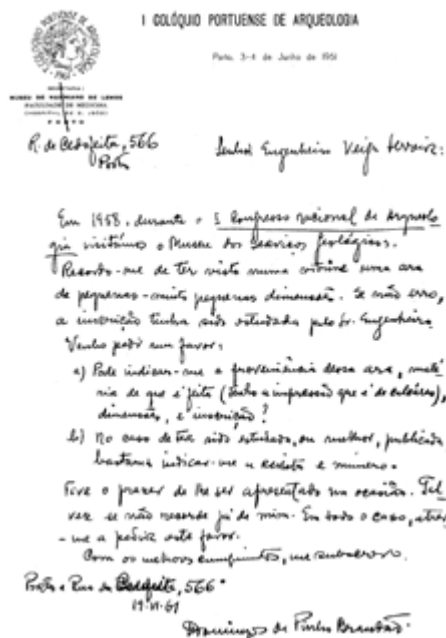 I COLÓQUIO PORTUENSE DE ARQUEOLOGIA
Porto, 3-4 de Junho de 1961
I COLÓQUIO PORTUENSE DE ARQUEOLOGIA
SECRETARIA:
MUSEU DE MAXIMIANO DE LEMOS
FACULDADE DE MEDICINA
(HOSPITAL DE S. JOÃO)
PORTO
R. de Cedofeita, 566
Porto
Senhor Engenheiro Veiga Ferreira:
Em 1958, durante o I Congresso nacional de Arqueolo
gia visitámos o Museu dos Serviços Geológicos.
Recordo-me de ter visto numa vitrine uma ara
de pequenas - muito pequenas dimensões. Se não erro,
a inscrição tinha sido estudada pelo Sr. Engenheiro.
Venho pedir um favor:
a) Pode indicar-me a proveniência dessa ara, maté
ria de que é feita (tenho a impressão que é de calcáreo),
dimensões, e inscrição?
b) No caso de ter sido estudada, ou melhor, publicada
bastaria indicar-me a revista e número.
Tive o prazer de lhe ser apresentado na ocasião. Tal
vez se não recorde já de mim. Em todo o caso, atrevo
-me a pedir este favor.
Com os melhores cumprimentos, me subscrevo.
Porto e Rua de Cedofeita, 566
19-VI-61
Domingos de Pinho Brandão